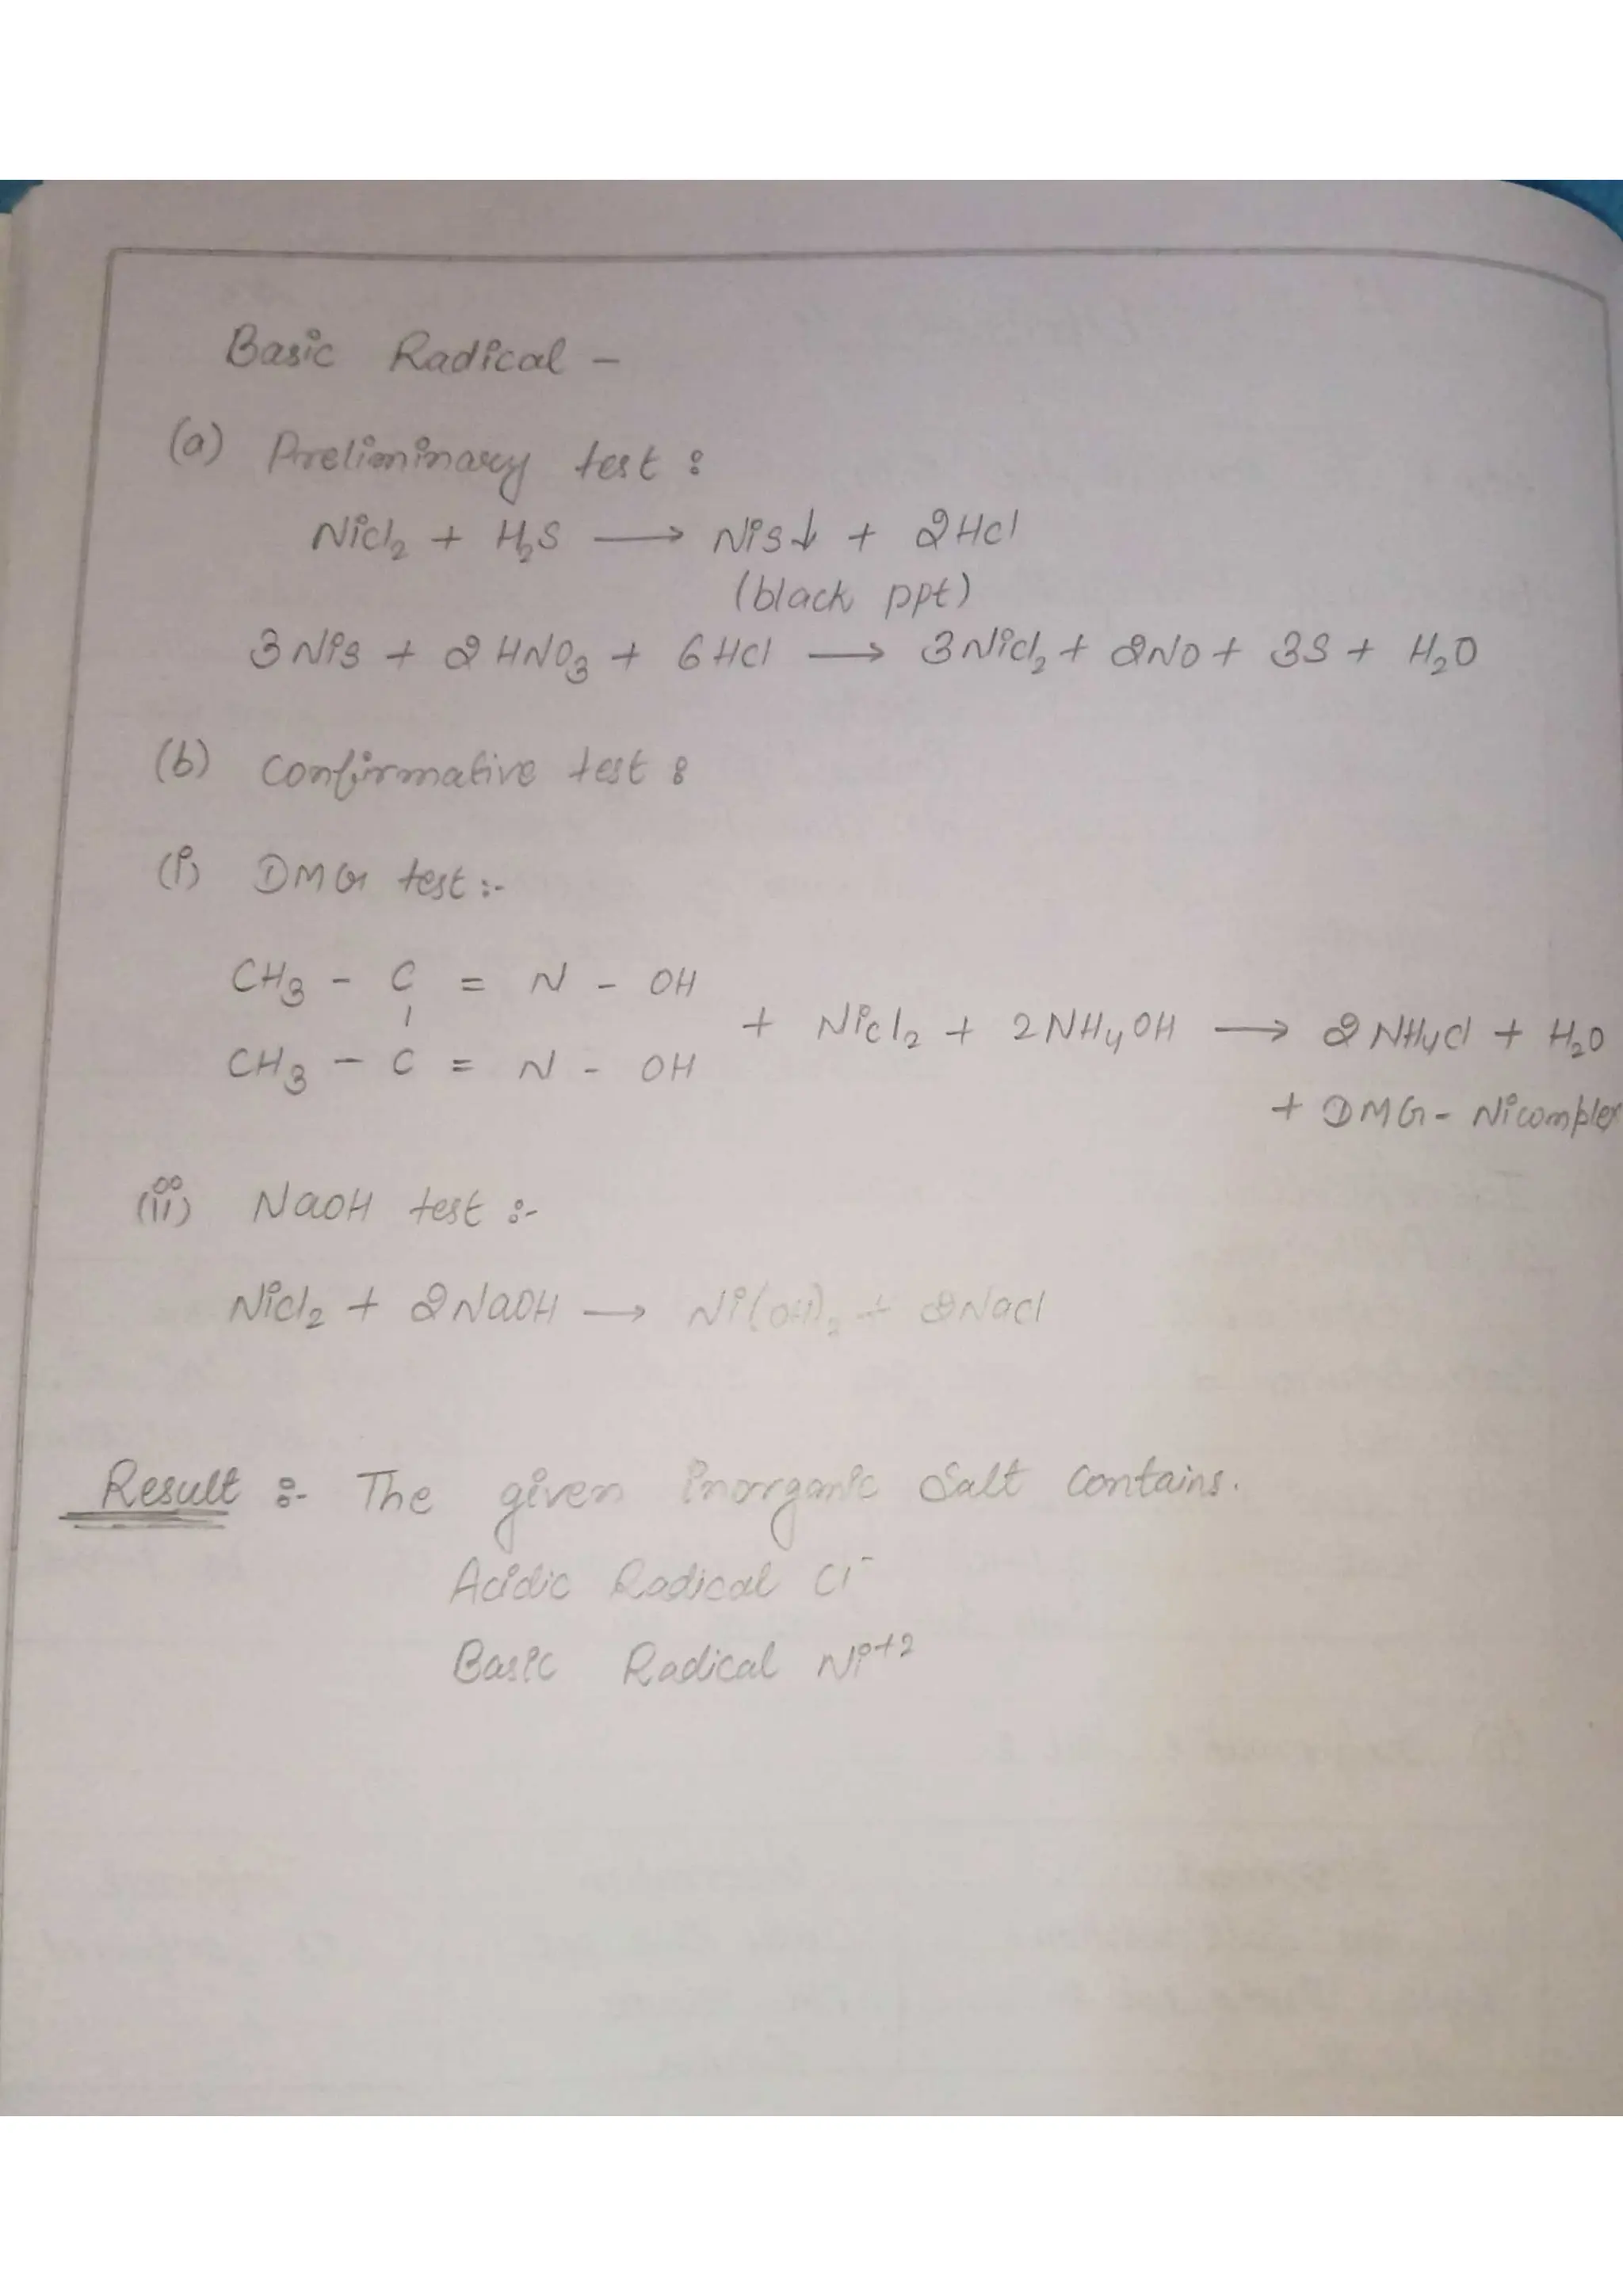 Basic Radical -
(a) Preliminary test :
Nicl₂ + H₂S ⟶ Nis↓ + 2Hcl
(black ppt)
3Nis + 2HNO₃ + 6Hcl ⟶ 3Nicl₂ + 2NO + 3S + H₂O
(b) Confirmative test :
(i) DMG test :-
CH₃ - C = N - OH
+ Nicl₂ + 2NH₄OH ⟶ 2NH₄cl + H₂O
CH₃ - C = N - OH
+ DMG - Ni complex
(ii) NaOH test :-
Nicl₂ + 2NaOH ⟶ Ni(OH)₂ + 2Nacl
Result :- The given inorganic Salt Contains.
Acidic Radical Cl⁻
Basic Radical Ni⁺²